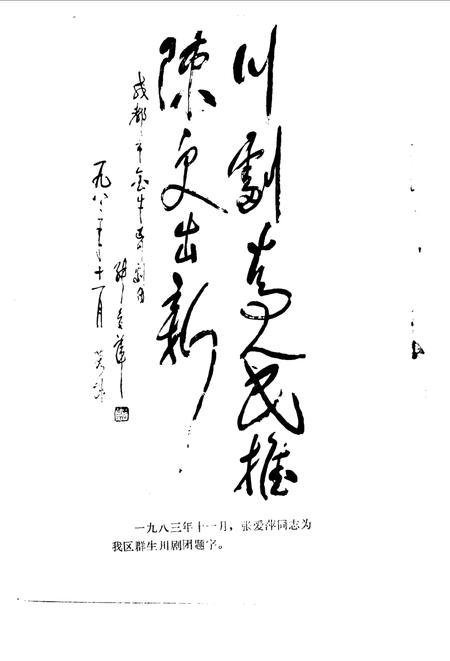 川劇为人民推
陳更出新
成都市金牛 剧团
张爱萍
一九八三年十一月
一九八三年十一月,张爱萍同志为
我区群生川剧团题字。